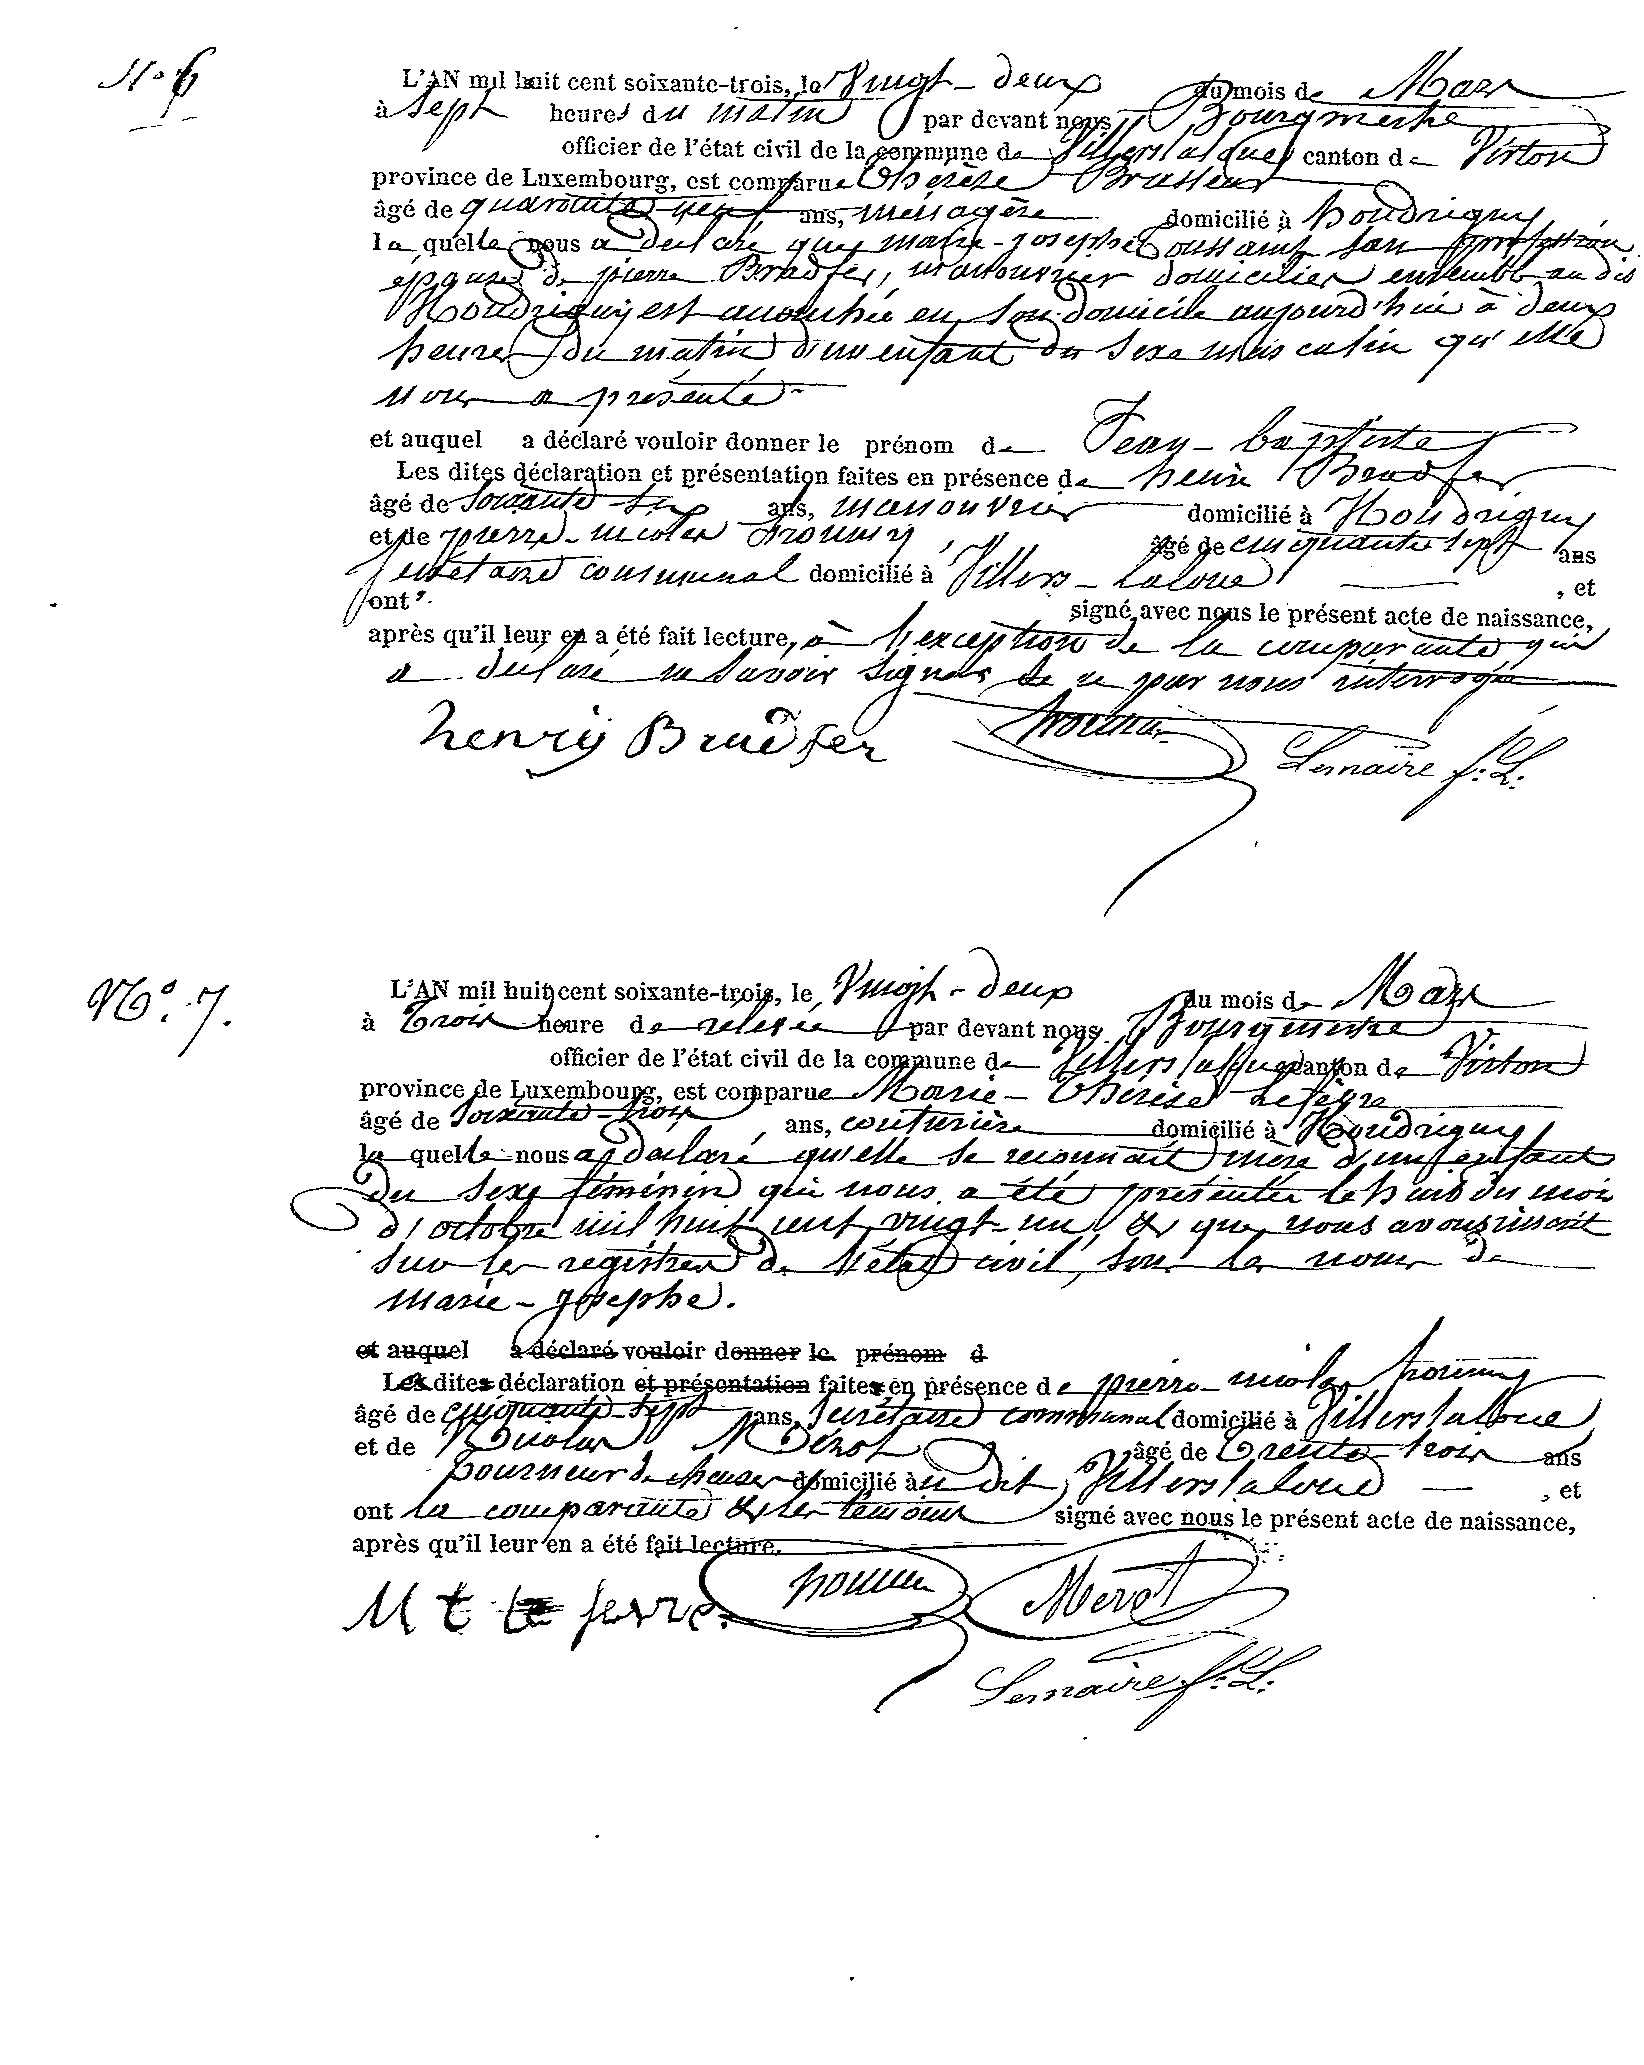 N.o 6
L'AN mil huit cent soixante-trois, le Vingt-deux du mois de Mars
à sept heures du matin par devant nous Bourgmestre
officier de l'état civil de la commune de Villers la loue canton de Virton
province de Luxembourg, est comparue Thérèse Brasseur
âgé de quarante neuf ans, ménagère domicilié à houdrigny
la quelle nous a déclaré que marie-josephe toussaint san profession
épouse de pierre Bradfer, manouvrier domicilier ensemble au dit
Houdrigny est accouchée en son domicile aujourd'hui à deux
heures du matin d'un enfant du sexe masculin qu'elle
nous a présenté
et auquel a déclaré vouloir donner le prénom de Jean-baptiste
Les dites déclaration et présentation faites en présence de henri Bradfer
âgé de soixante six ans, manouvrier domicilié à Houdrigny
et de pierre-nicolas , âgé de cinquante sept ans
secrétaire communal domicilié à Villers-laloue , et
ont signé avec nous le présent acte de naissance,
après qu'il leur en a été fait lecture, à l'exception de la comparante qui
a déclaré ne savoir signer de ce par nous interrogée
henry Bradfer
Lemaire f.L.
No. 7.
L'AN mil huit cent soixante-trois, le Vingt-deux du mois de Mars
à Trois heure de relevée par devant nous Bourgmestre
officier de l'état civil de la commune de Villers la loue canton de Virton
province de Luxembourg, est comparue Marie-Thérèse Lefèvre
âgé de soixante-trois ans, couturière domicilié à Houdrigny
la quelle nous a déclaré qu'elle se reconnait mère d'un enfant
du sexe féminin qui nous a été présentée le huit du mois
d'octobre mil huit cent vingt-un, & que nous avons inscrit
sur les registres de l'état civil, sous les noms de
marie-josephe.
et auquel a déclaré vouloir donner le prénom d
Les dites déclaration et présentation faites en présence de pierre-nicolas
âgé de cinquante-sept ans, secrétaire communal domicilié à Villers laloue
et de Nicolas Mérot âgé de Trente-trois ans
domicilié à u dit Villers laloue , et
ont la comparante & les témoins signé avec nous le présent acte de naissance,
après qu'il leur en a été fait lecture.
M t le ferre.
Merot
Lemaire f.L.